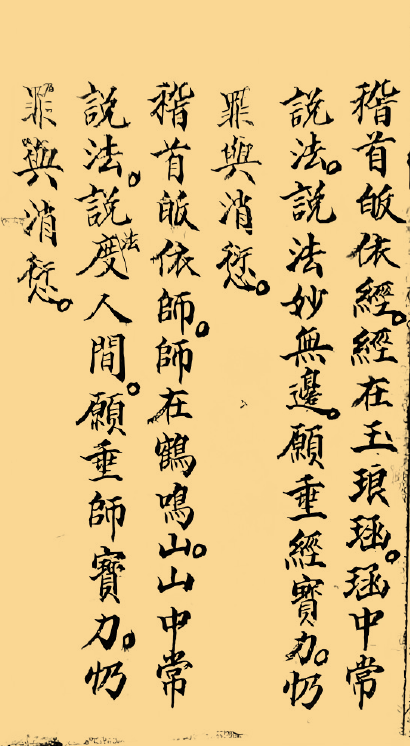 稽首皈依經。經在玉琅函。函中常
說法。說法妙無邊。願垂經寶力。忉
罪與消愆。
稽首皈依師。師在鶴鳴山。山中常
說法。說法度人間。願垂師寶力。忉
罪與消愆。